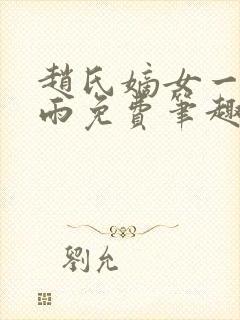 趙氏嫡女一
雨免費筆趣
劉允